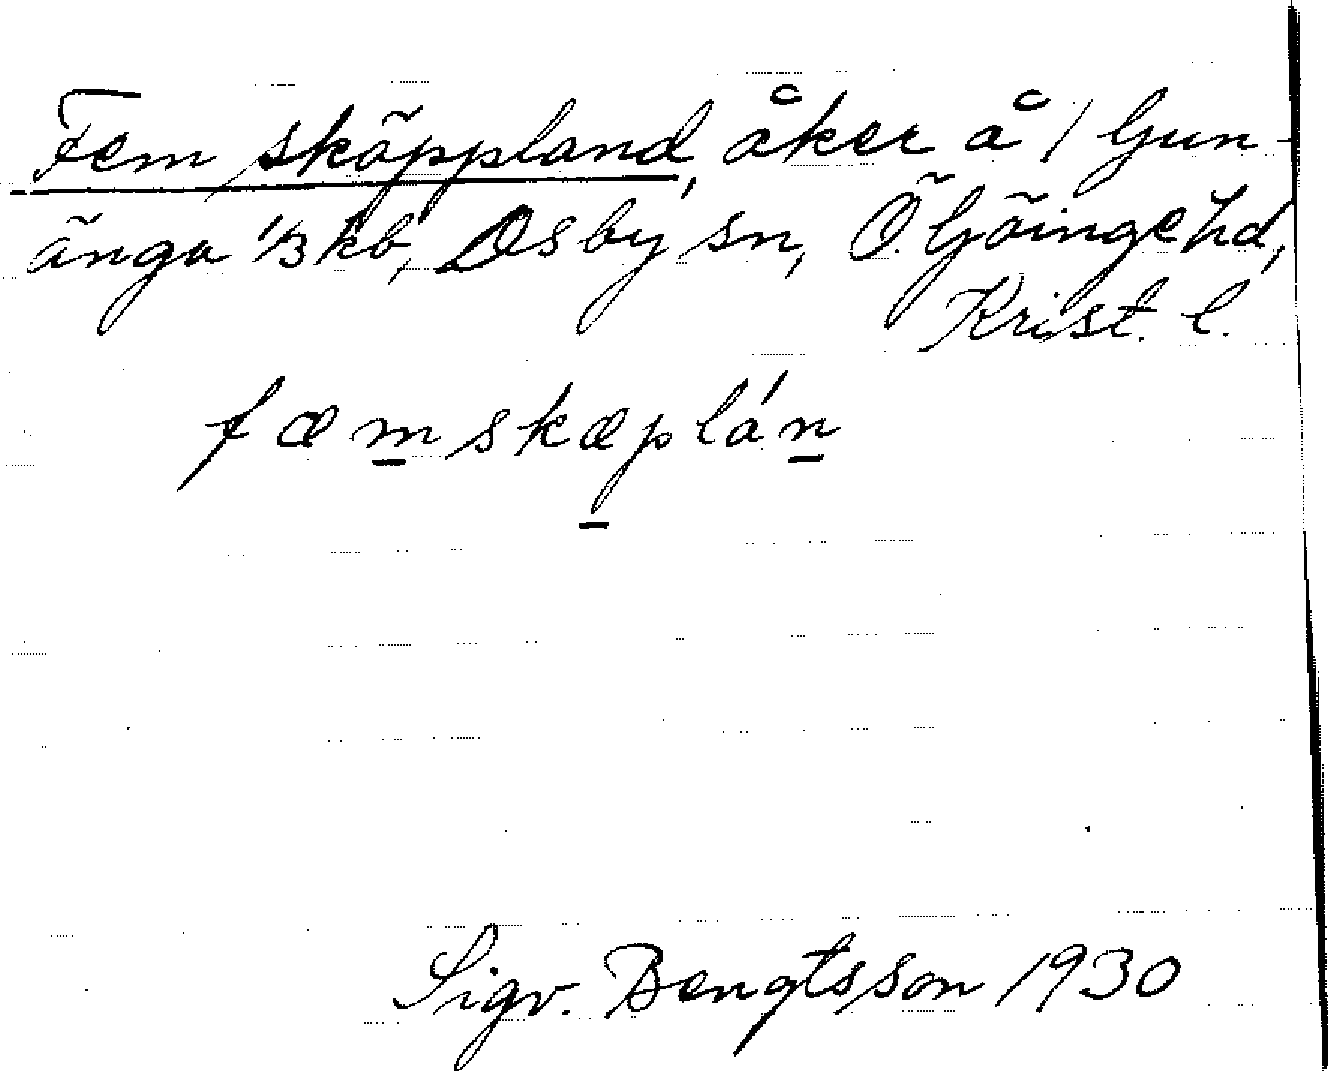 Fem skäppland, åker å 1 Gun-
änga 1/3 kb, Osby sn, Ö. Göinge hd,
Krist. l.
fæmskæplán
Sigv. Bengtsson 1930